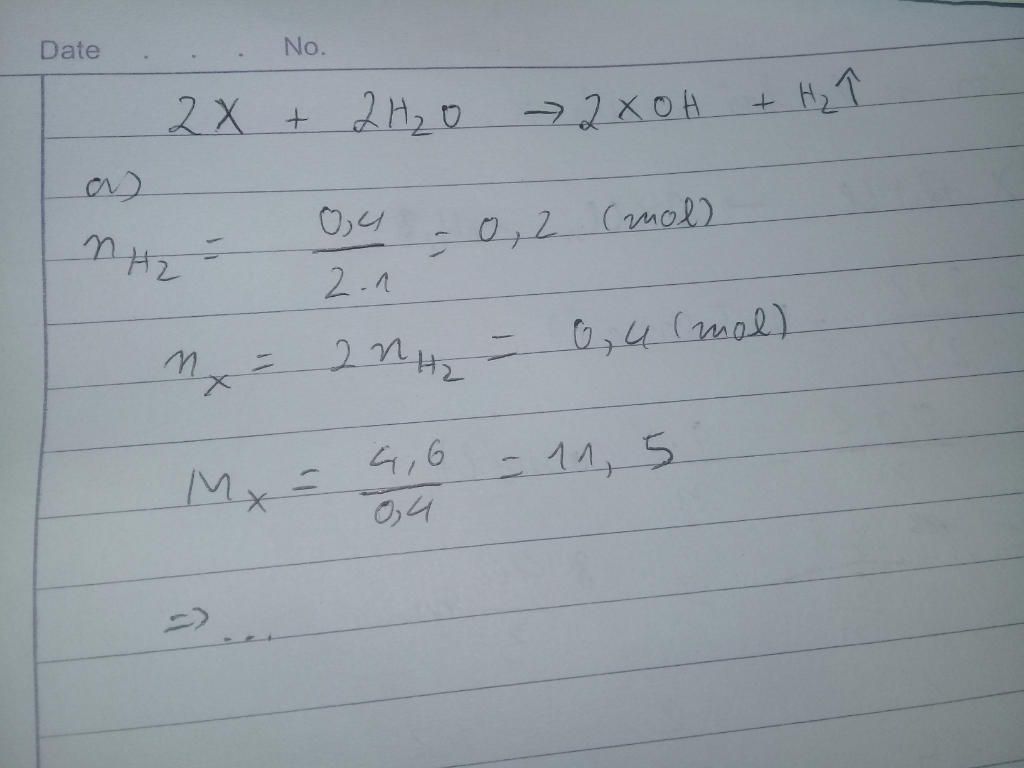 Date . . . No.
2X + 2H₂O → 2XOH + H₂↑
a)
n_H₂ = 0,4 / 2.1 = 0,2 (mol)
n_X = 2n_H₂ = 0,4 (mol)
M_X = 4,6 / 0,4 = 11,5
=> ...